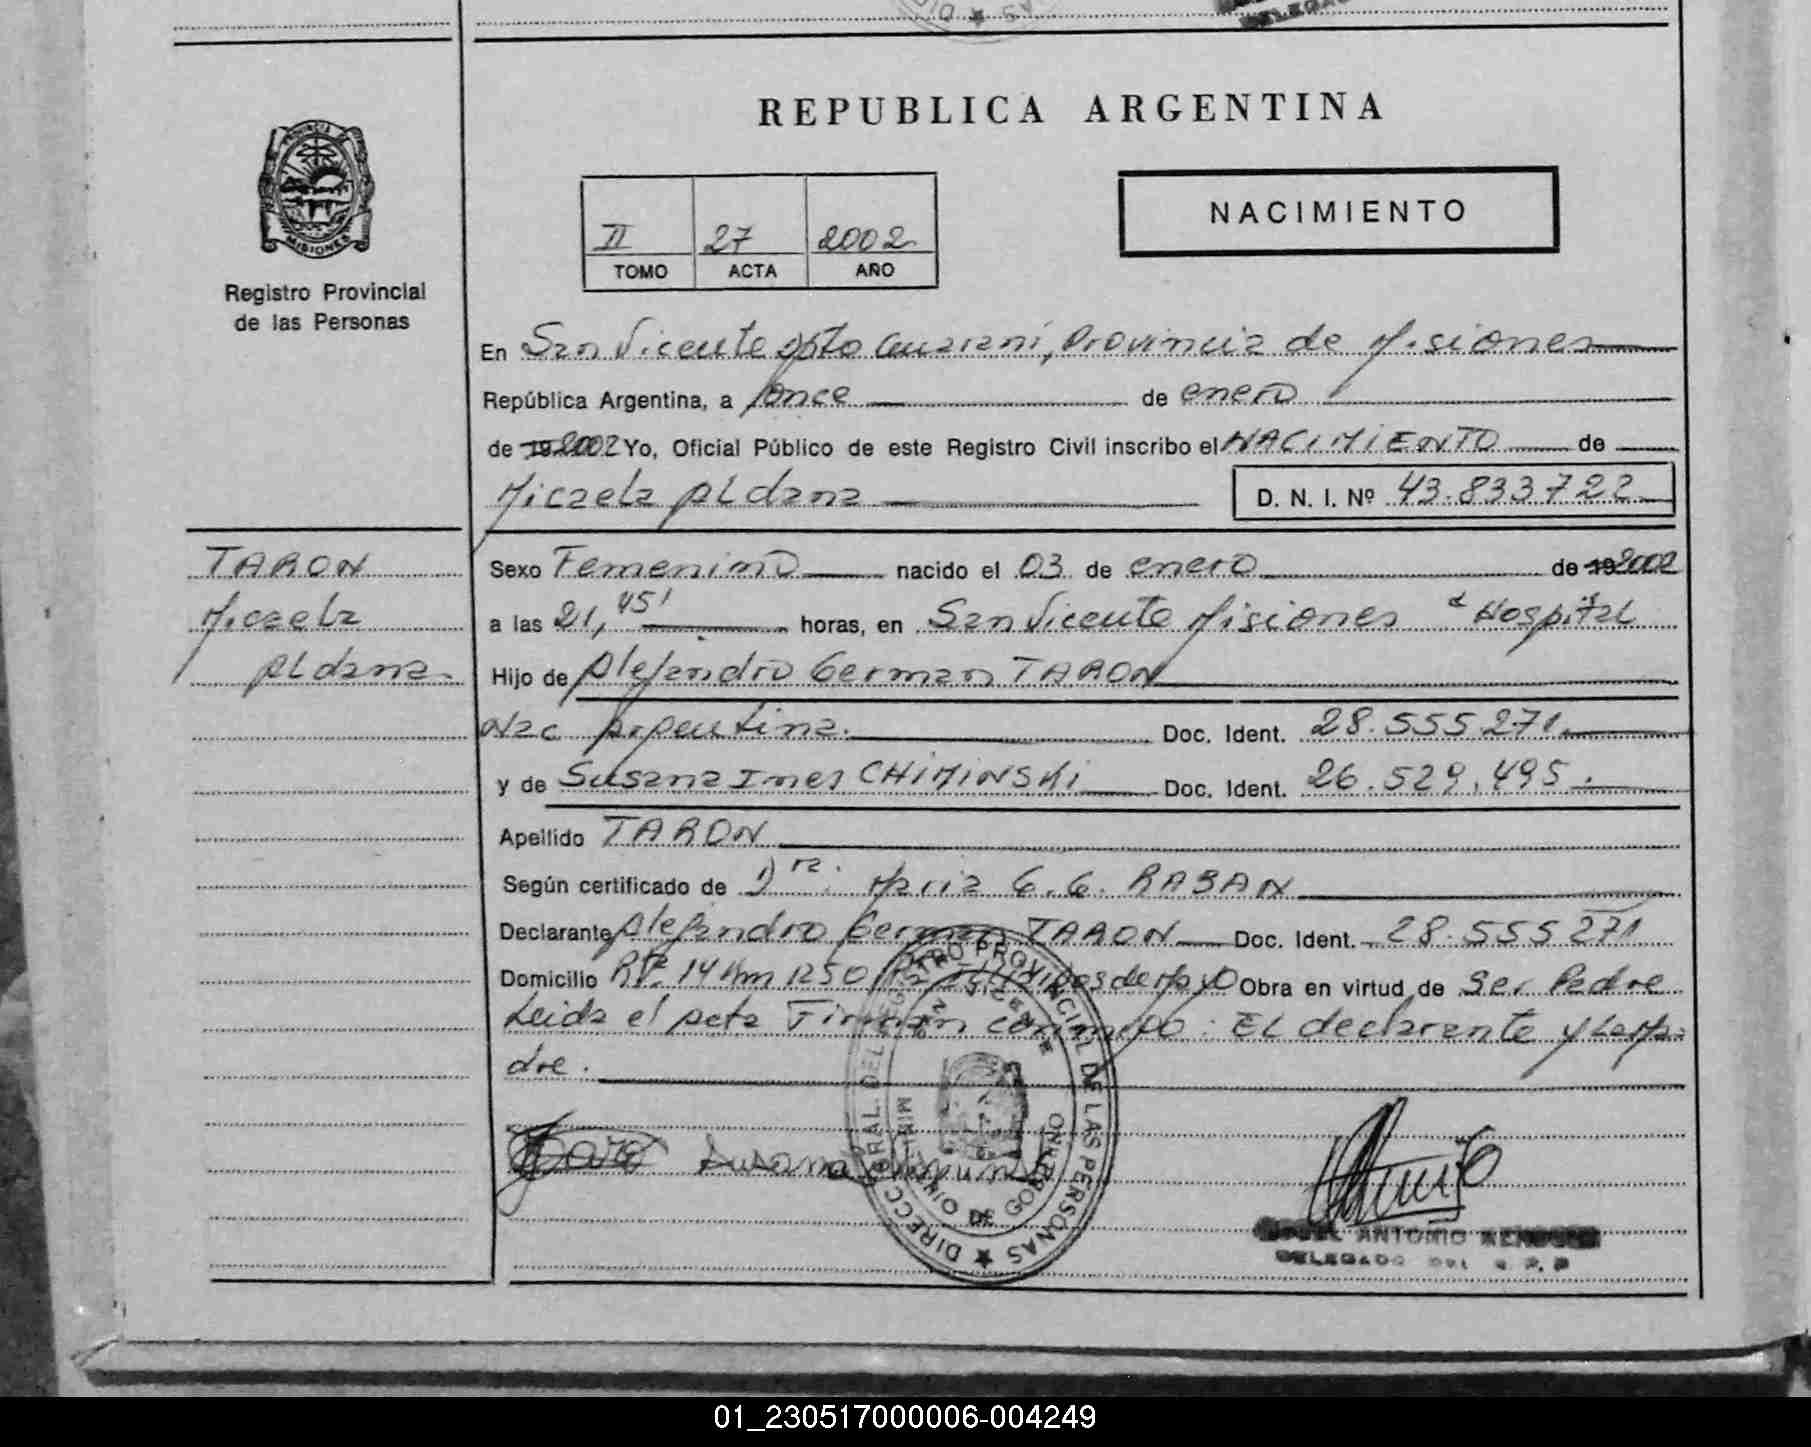 REPUBLICA ARGENTINA
PROVINCIA DE
MISIONES
Registro Provincial
de las Personas
II 27 2002
TOMO ACTA AÑO
NACIMIENTO
En San Vicente Dpto Guarani, Provincia de Misiones
República Argentina, a once de enero
de 19 2002 Yo, Oficial Público de este Registro Civil inscribo el NACIMIENTO de
Micaela Aldana D. N. I. Nº 43.833722
TARON
Micaela
Aldana
Sexo Femenino nacido el 03 de enero de 19 2002
a las 21,45' horas, en San Vicente Misiones Hospital
Hijo de Alejandro German TARON
Nac Argentina. Doc. Ident. 28.555.271.
y de Susana Ines CHIMINSKI Doc. Ident. 26.529.495.
Apellido TARON
Según certificado de Dra. Maria G.G. RABAN
Declarante Alejandro German TARON Doc. Ident. 28.555 271
Domicilio RN. 14 Km 1250 de Mayo Obra en virtud de Ser Padre
Leida el acta Firman conmigo: El declarante y La ma-
dre.
Susana
DIRECC. GRAL. DEL REGISTRO PROVINCIAL DE LAS PERSONAS
SAN VICENTE
MINISTERIO DE GOBIERNO
ANTONIO
DELEGADO DEL R. P. P
01_230517000006-004249